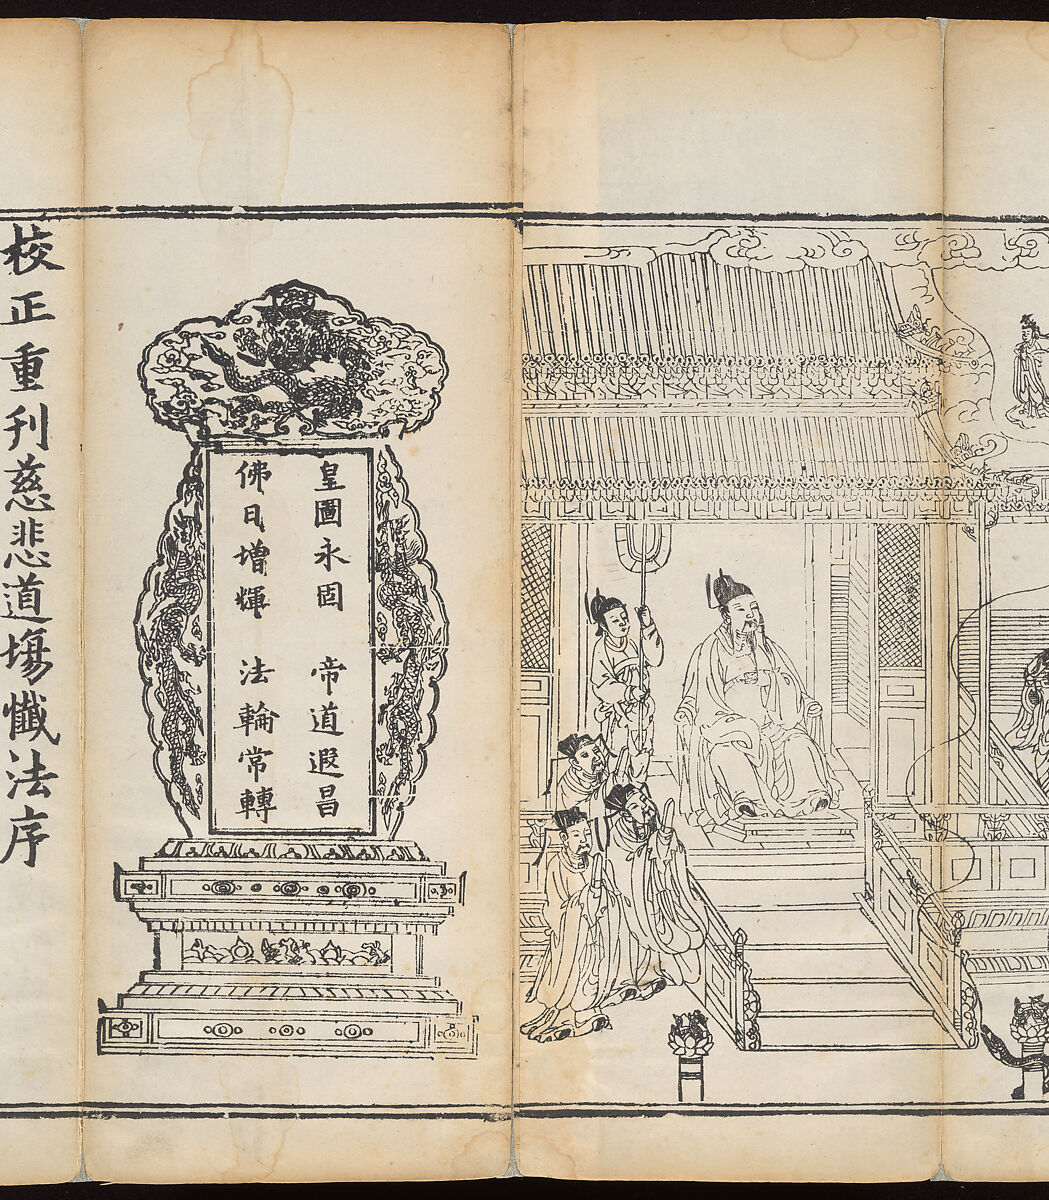 皇圖永固 帝道遐昌
佛日增輝 法輪常轉
校正重刊慈悲道場懺法序